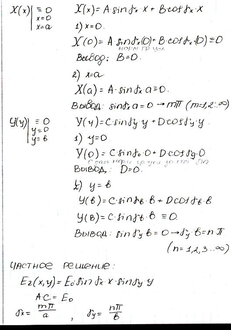 X(x)| ≡ 0
x=0
x=a
X(x) = A sin γₓ x + B cos γₓ x
1) x=0.
X(0) = A sin γₓ(0) + B cos γₓ(0) = 0
Вывод: B=0.
2) x=a
X(a) = A sin γₓ a ≡ 0.
Вывод: sin γₓ a = 0 → mπ (m=1,2..∞)
Y(y)| ≡ 0
y=0
y=в
Y(y) = C sin γy y + D cos γy y
1) y=0.
Y(0) = C sin γy 0 + D cos γy 0
Вывод: D=0.
2) y = в
Y(в) = C sin γy в + D cos γy в
Y(в) = C sin γy в ≡ 0.
Вывод: sin γy в = 0 → nπ
(n=1,2,3...∞)
ЧАСТНОЕ РЕШЕНИЕ:
Ez(x,y) = E₀ sin γₓ x · sin γy y
AC = E₀
γx = mπ/a , γy = nπ/в